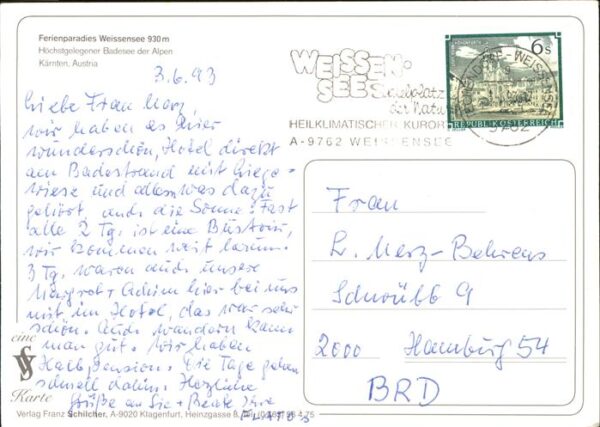 Ferienparadies Weissensee 930 m
Höchstgelegener Badesee der Alpen
Kärnten, Austria
3.6.93
Liebe Frau Merz,
wir haben es hier
wunderschön, Hotel direkt
am Badestrand mit Liege-
wiese und allem was dazu
gehört, auch die Sonne. Fast
alle 2 Tg. ist eine Bustour,
wir kommen weit herum.
3 Tg. waren auch unsere
Margret + Achim hier bei uns
mit im Hotel, das war sehr
schön. Auch wandern kann
man gut. Wir haben
Halbpension. Die Tage gehen
schnell dahin. Herzliche
Grüße an Sie + Beate Ihre
eine
VS
Karte
Verlag Franz Schilcher, A-9020 Klagenfurt, Heinzgasse
WEISSEN-
SEE Spielplatz
der Natur
HEILKLIMATISCHER KURORT
A-9762 WEISSENSEE
6 S
REPUBLIK ÖSTERREICH
9762
Frau
L. Merz-Behrens
2000 Hamburg 54
BRD